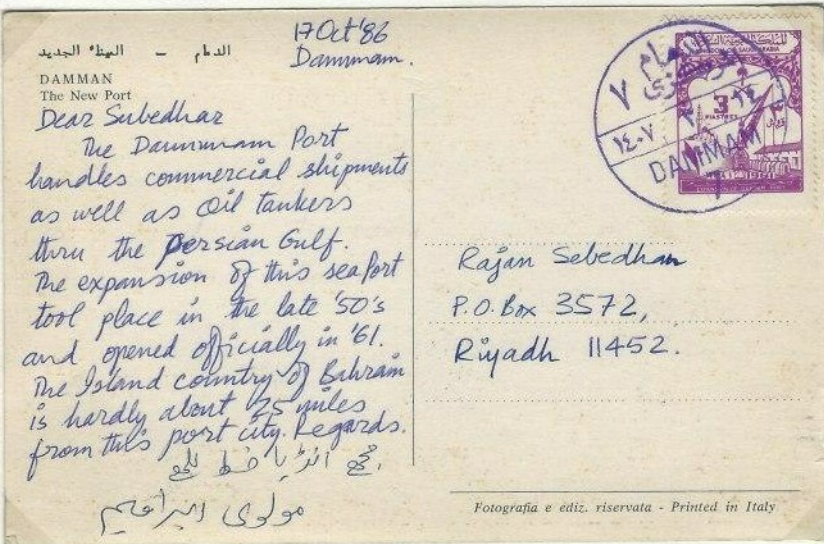 الدمام - الميناء الجديد
DAMMAN
The New Port
17 Oct '86
Dammam.
Dear Subedhar
The Dammam Port
handles commercial shipments
as well as Oil tankers
thru the Persian Gulf.
The expansion of this sea Port
tool place in the late '50's
and opened officially in '61.
The Island country of Bahrain
is hardly about 25 miles
from this port city. Regards.
خط
مولوی ابراهیم
الدمام
٧
١٤٠٧
DAMMAM
7
3
PIASTRES
Rajan Sebedhan
P.O. Box 3572,
Riyadh 11452.
Fotografia e ediz. riservata - Printed in Italy